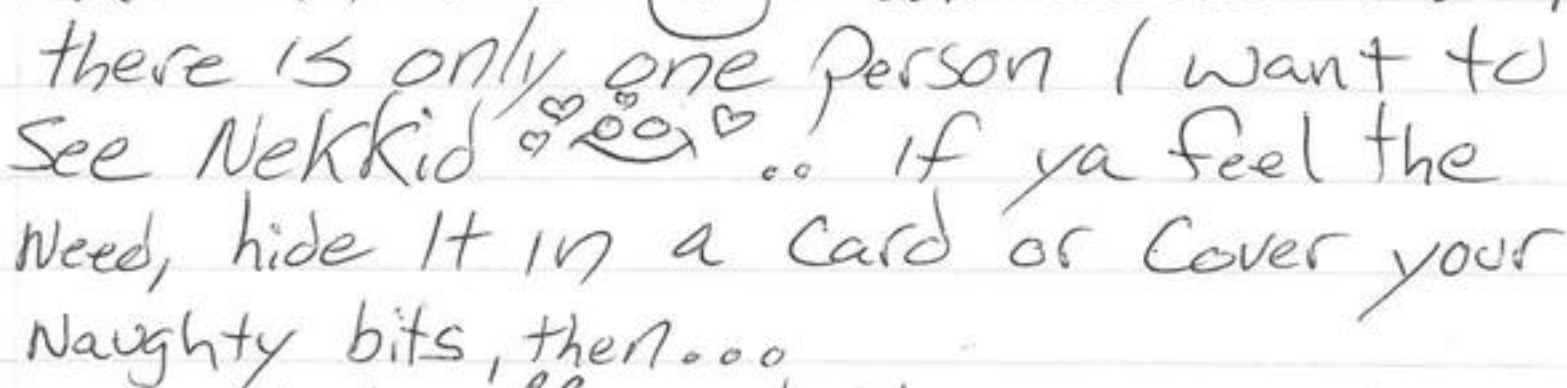 there is only one Person I want to
See Nekkid .. If ya feel the
Need, hide It in a Card or Cover your
Naughty bits, then...